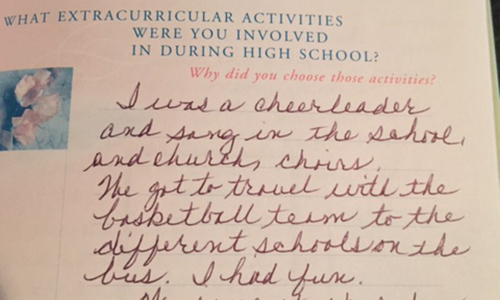 WHAT EXTRACURRICULAR ACTIVITIES
WERE YOU INVOLVED
IN DURING HIGH SCHOOL?
Why did you choose those activities?
I was a cheerleader
and sang in the school,
and church, choirs.
We got to travel with the
basketball team to the
different schools on the
bus. I had fun.